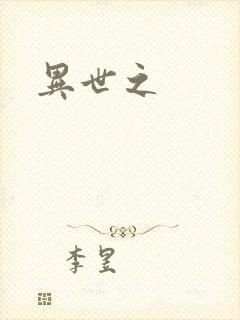 異世之
李昱